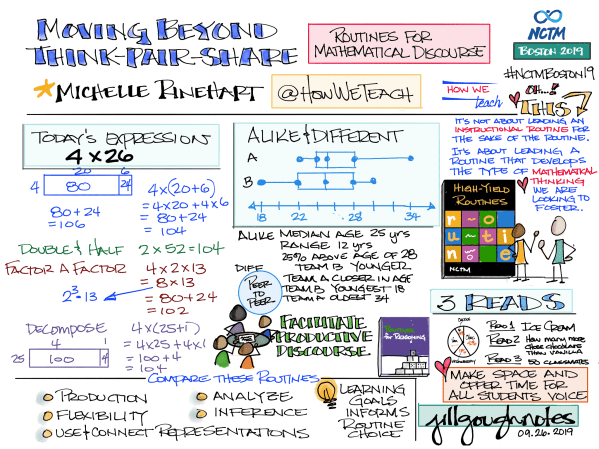 MOVING BEYOND
THINK-PAIR-SHARE
ROUTINES FOR
MATHEMATICAL DISCOURSE
NCTM
BOSTON 2019
MICHELLE RINEHART
@HOWWETEACH
#NCTMBOSTON19
HOW WE
teach
OH...!
THIS
IT'S NOT ABOUT LEADING AN
INSTRUCTIONAL ROUTINE FOR
THE SAKE OF THE ROUTINE.
IT'S ABOUT LEADING A
ROUTINE THAT DEVELOPS
THE TYPE OF MATHEMATICAL
THINKING
WE ARE
LOOKING
TO FOSTER..
TODAY'S EXPRESSION
4 x 26
20 6
4 80 24
80+24
=106
4x(20+6)
=4x20+4x6
=80+24
=104
DOUBLE & HALF 2 x 52 = 104
FACTOR A FACTOR 4 x 2 x 13
= 8 x 13
= 80+24
= 102
2³·13
DECOMPOSE
4 1
25 100 4
4x(25+1)
=4x25+4x1
=100+4
=104
ALIKE & DIFFERENT
A
B
18 22 28 34
ALIKE MEDIAN AGE 25 yrs
RANGE 12 yrs
25% ABOVE AGE OF 28
DIFF TEAM B YOUNGER
TEAM A CLOSER IN AGE
TEAM B YOUNGEST 18
TEAM A OLDEST 34
PEER
TO
PEER
FACILITATE
PRODUCTIVE
DISCOURSE
for Reasoning
HIGH-YIELD
ROUTINES
r o
u t i
n e
NCTM
3 READS
READ 1 ICE CREAM
READ 2 HOW MANY MORE
CHOSE CHOCOLATE
THAN VANILLA
READ 3 50 CLASSMATES
MAKE SPACE AND
OFFER TIME FOR
ALL STUDENTS VOICE
COMPARE THESE ROUTINES
PRODUCTION
ANALYZE
FLEXIBILITY
INFERENCE
USE & CONNECT REPRESENTATIONS
LEARNING
GOALS
INFORMS
ROUTINE
CHOICE
jillgoughnotes
09.26.2019